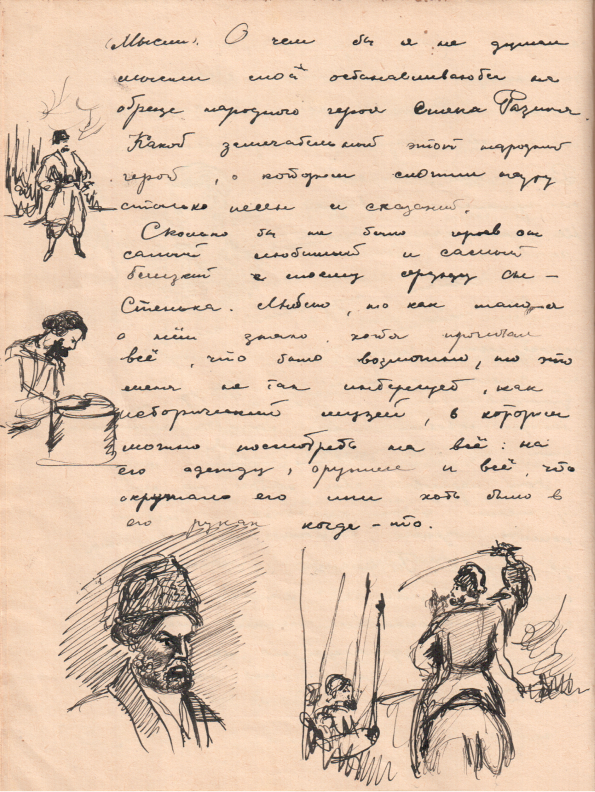 (Мысли). О чем бы я не думал
мысли мои останавливаются на
образе народного героя Стеньки Разина.
Какой замечательный этот народный
герой, о котором сложили
столько песен и сказаний.
Сколько бы не было он
самый любимый и самый
близкий к моему сердцу
Стенька. Люблю, но как мало я
о нём знаю, хотя прочитал
всё, что было возможно, но это
меня не так интересует, как
исторический музей, в котором
можно посмотреть на всё: на
его одежду, оружие и всё, что
окружало его или хоть было в
его руках когда-то.